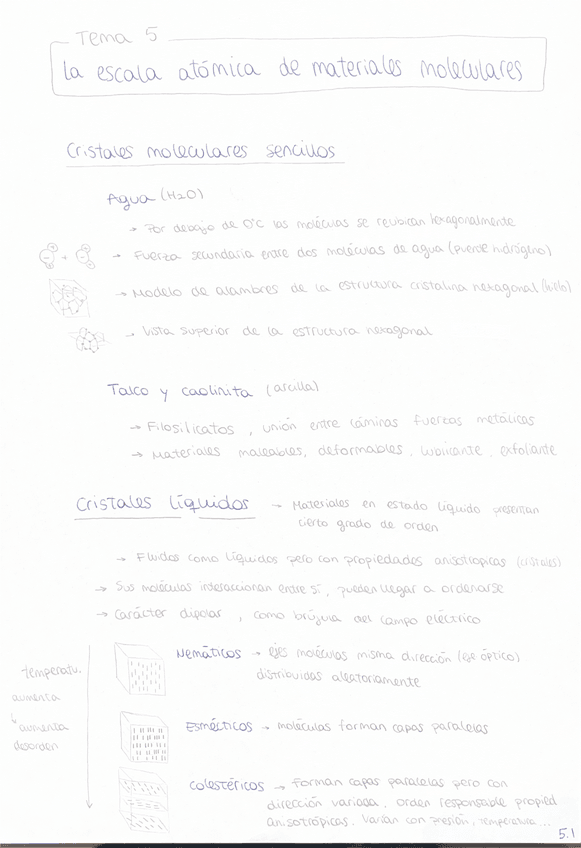 Tema 5
La escala atómica de materiales moleculares
Cristales moleculares sencillos
Agua (H2O)
→ Por debajo de 0°C las moléculas se reubican hexagonalmente
→ Fuerza secundaria entre dos moléculas de agua (puente hidrógeno)
→ Modelo de alambres de la estructura cristalina hexagonal (hielo)
→ Vista superior de la estructura hexagonal
Talco y caolinita (arcilla)
→ Filosilicatos, unión entre láminas fuerzas metálicas
→ Materiales maleables, deformables, lubricante, exfoliante
Cristales líquidos → Materiales en estado líquido presentan
cierto grado de orden
→ Fluidos como líquidos pero con propiedades anisotrópicas (cristales)
→ Sus moléculas interaccionan entre sí, pueden llegar a ordenarse
→ Carácter dipolar, como brújula del campo eléctrico
temperatu.
aumenta
↳ aumenta
desorden
Nemáticos → ejes moléculas misma dirección (eje óptico)
distribuidas aleatoriamente
Esmécticos → moléculas forman capas paralelas
Colestéricos → Forman capas paralelas pero con
dirección variada, orden responsable propied
anisotrópicas. Varían con presión, temperatura...
5.1